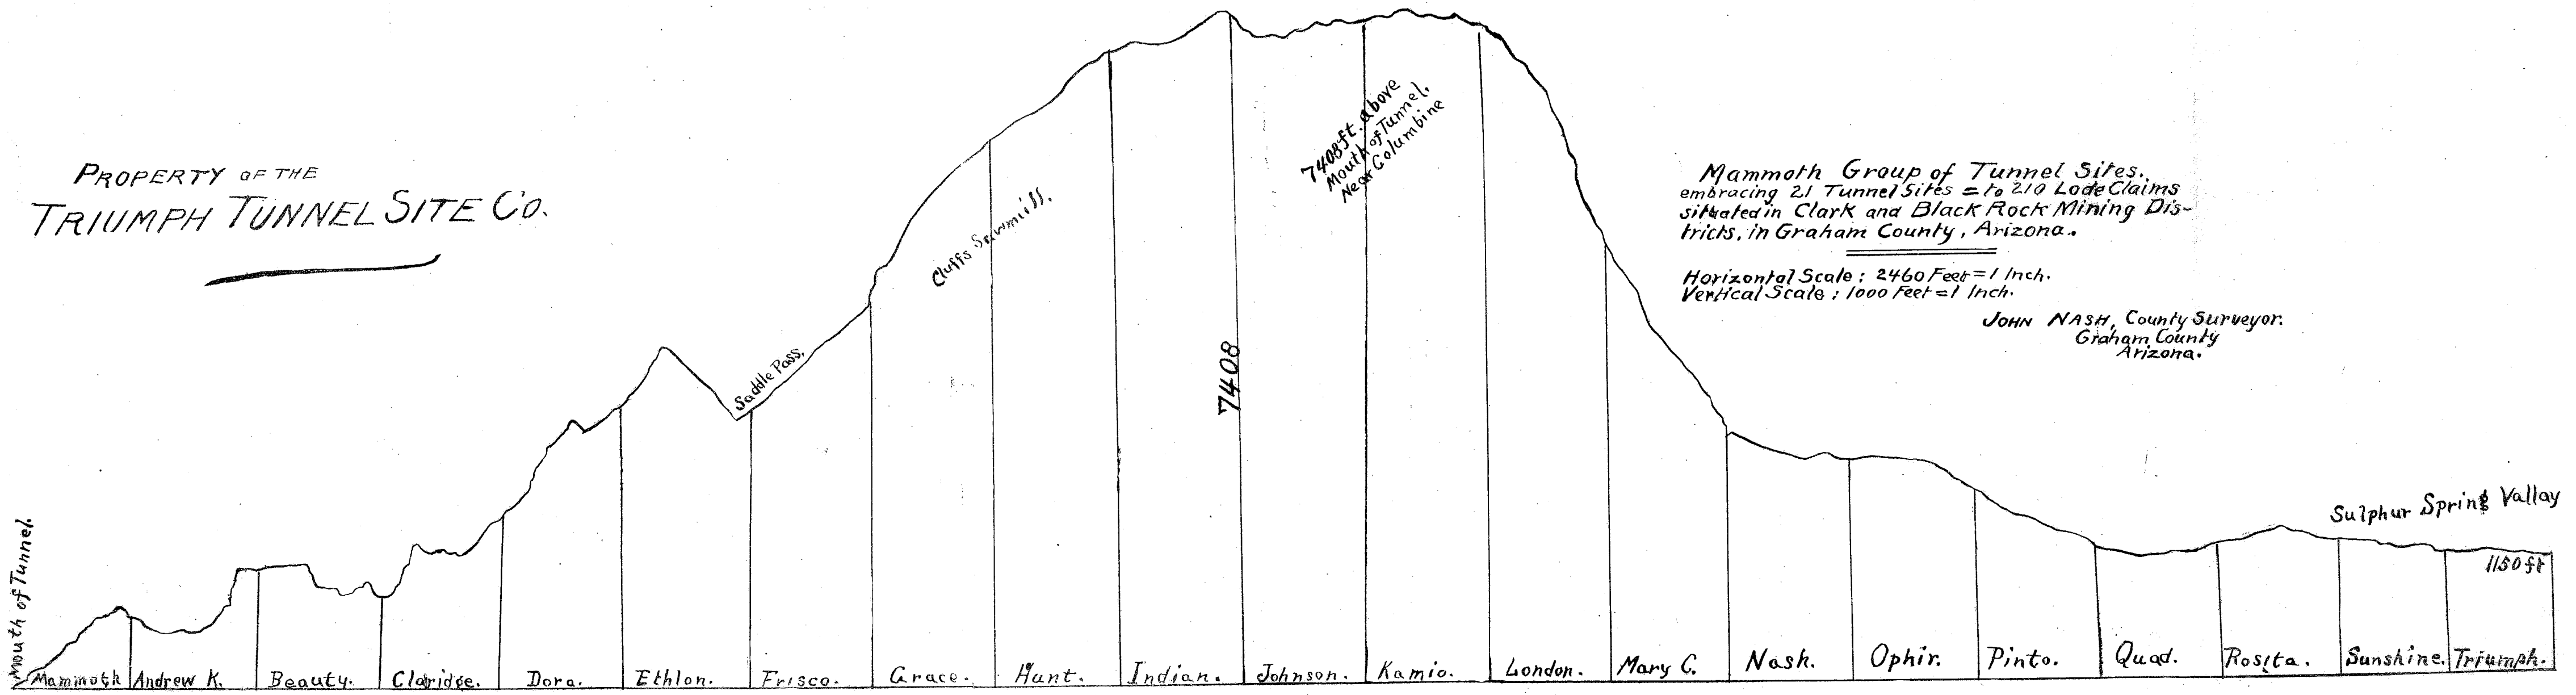 PROPERTY OF THE
TRIUMPH TUNNEL SITE CO.
Mammoth Group of Tunnel Sites.
embracing 21 Tunnel Sites = to 210 Lode Claims
situated in Clark and Black Rock Mining Dis-
tricts, in Graham County, Arizona.
Horizontal Scale: 2460 Feet = 1 Inch.
Vertical Scale: 1000 Feet = 1 Inch.
JOHN NASH, County Surveyor.
Graham County
Arizona.
7408 ft. above
Mouth of Tunnel,
Near Columbine
Cluffs Sawmill.
Saddle Pass.
7408
Sulphur Spring Vallay
1150 ft
Mouth of Tunnel.
Mammoth
Andrew K.
Beauty.
Claridge.
Dora.
Ethlon.
Frisco.
Grace.
Hunt.
Indian.
Johnson.
Kamio.
London.
Mary C.
Nash.
Ophir.
Pinto.
Quad.
Rosita.
Sunshine.
Triumph.